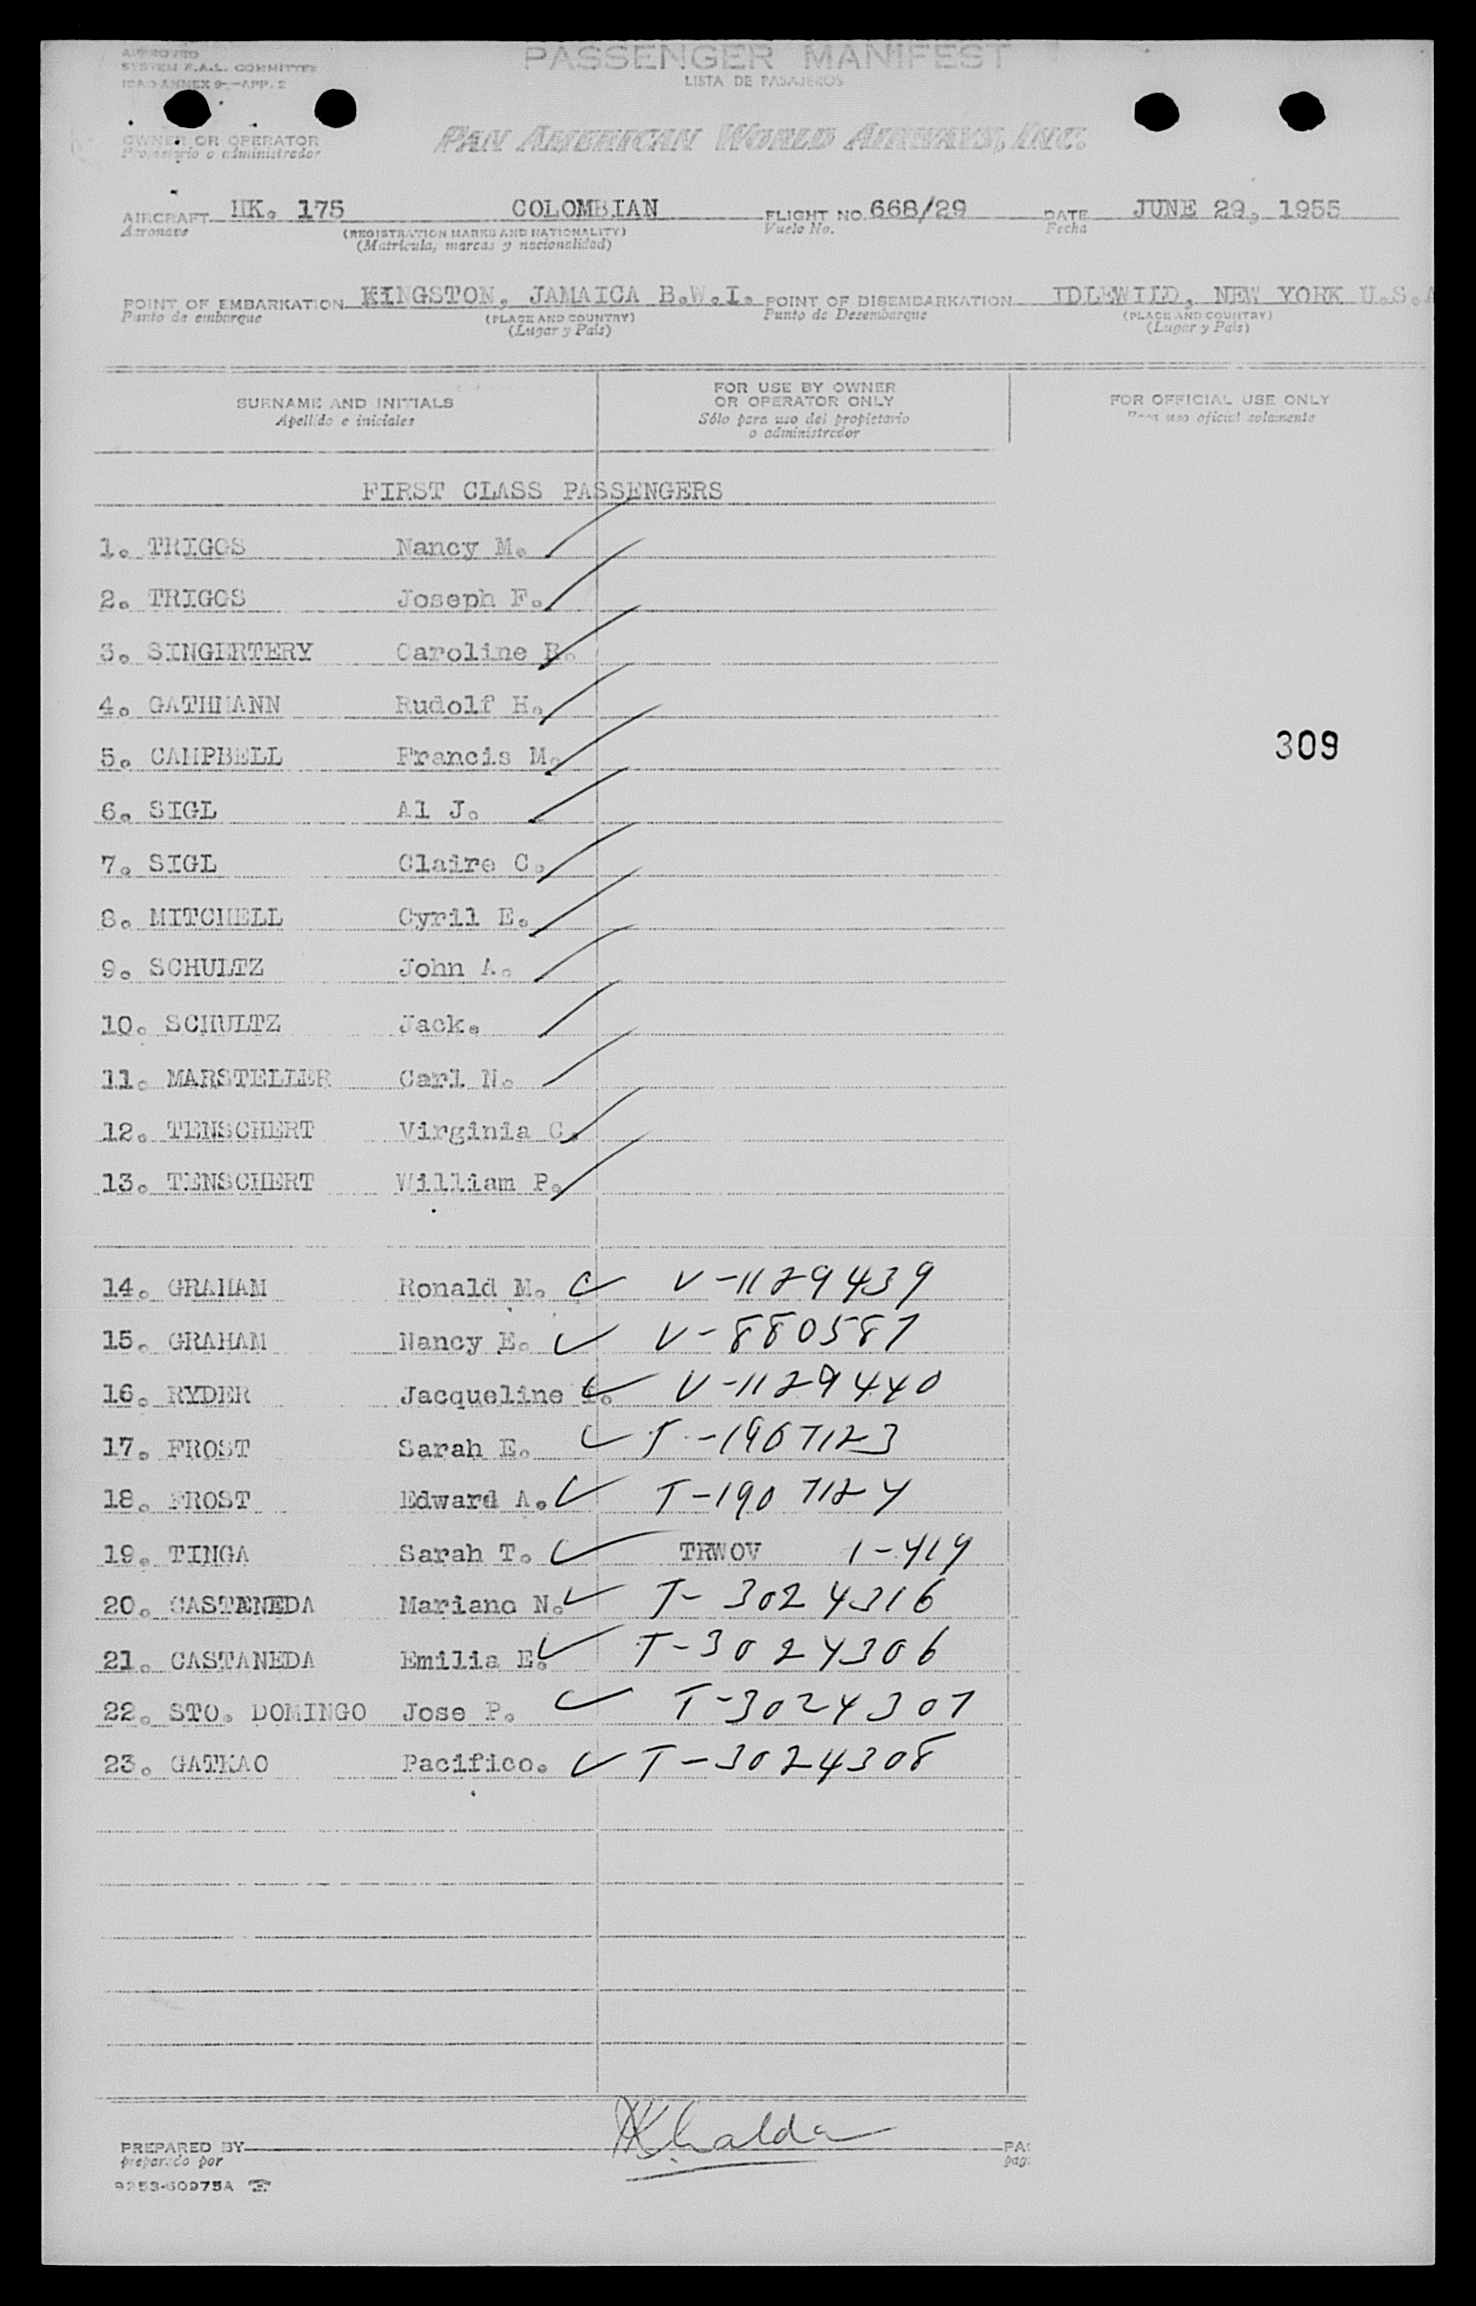 APPROVED
SYSTEM F.A.L. COMMITTEE
ICAO ANNEX 9—APP. 2
PASSENGER MANIFEST
LISTA DE PASAJEROS
OWNER OR OPERATOR
Propietario o administrador
PAN AMERICAN WORLD AIRWAYS, INC.
AIRCRAFT HK. 175 COLOMBIAN FLIGHT NO. 668/29 DATE JUNE 29, 1955
Aeronave (REGISTRATION MARKS AND NATIONALITY) Vuelo No. Fecha
(Matrícula, marcas y nacionalidad)
POINT OF EMBARKATION KINGSTON, JAMAICA B.W.I. POINT OF DISEMBARKATION IDLEWILD, NEW YORK U.S.A
Punto de embarque (PLACE AND COUNTRY) Punto de Desembarque (PLACE AND COUNTRY)
(Lugar y País) (Lugar y País)
SURNAME AND INITIALS
Apellido e iniciales
FOR USE BY OWNER
OR OPERATOR ONLY
Sólo para uso del propietario
o administrador
FOR OFFICIAL USE ONLY
Para uso oficial solamente
FIRST CLASS PASSENGERS
1. TRIGOS Nancy M.
2. TRIGOS Joseph F.
3. SINGERTERY Caroline R.
4. GATHMANN Rudolf H.
5. CAMPBELL Francis M.
309
6. SIGL Al J.
7. SIGL Claire C.
8. MITCHELL Cyril E.
9. SCHULTZ John A.
10. SCHULTZ Jack.
11. MARSTELLER Carl N.
12. TENSCHERT Virginia C.
13. TENSCHERT William P.
14. GRAHAM Ronald M. ✓ V-1129439
15. GRAHAM Nancy E. ✓ V-880587
16. RYDER Jacqueline ✓ V-1129440
17. FROST Sarah E. ✓ T-1907123
18. FROST Edward A. ✓ T-1907124
19. TINGA Sarah T. ✓ TRWOV 1-419
20. CASTANEDA Mariano N. ✓ T-3024316
21. CASTANEDA Emilia E. ✓ T-3024306
22. STO. DOMINGO Jose P. ✓ T-3024307
23. GATKAO Pacifico. ✓ T-3024308
PREPARED BY PA
preparado por pag
9253-60975A